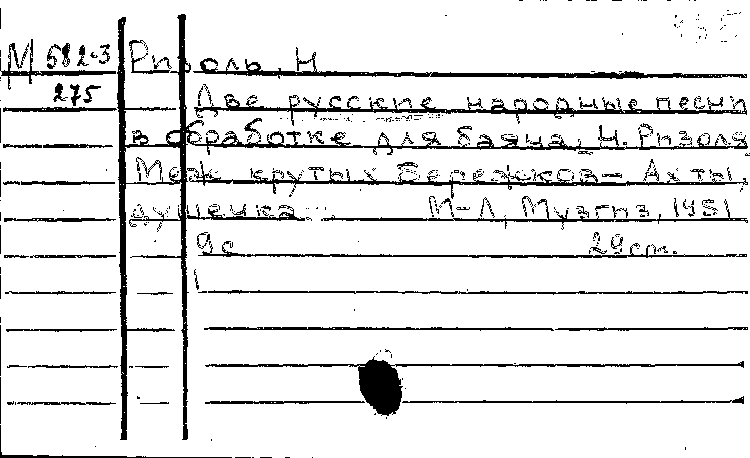 М 582-3 Ризоль, Н
275 Две русские народные песни
в обработке для баяна, Н. Ризоля
Меж крутых бережков - Ах ты,
душечка М-Л, Музгиз, 1951
9с 29 cm.